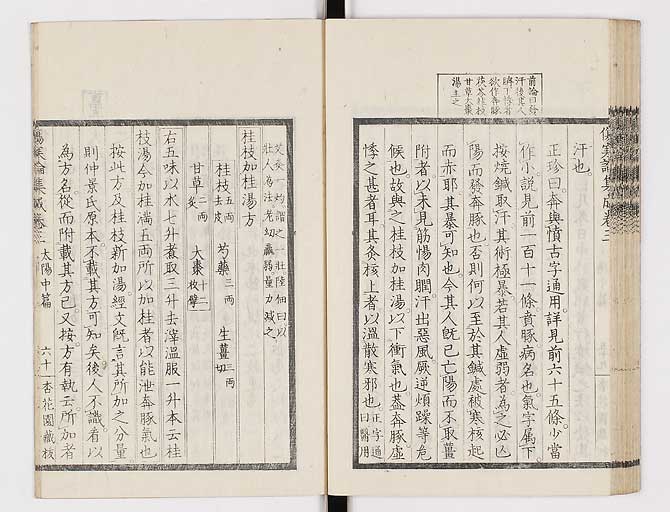 前論曰發
汗後其人
臍下悸者
欲作奔豚
茯苓桂枝
甘草大棗
湯主之
汗也
正珍曰奔與憤古字通用詳見前六十五條少當
作小說見前一百十一條賁豚病名也氣字屬下
按燒鍼取汗其術極暴若其人虛弱者為之必
陽而發奔豚也否則何以至於其鍼處被寒核起
而亦耶其暴可知也今其人既已亡陽而不取薑
附者以未見筋惕肉瞤汗出惡風厥逆煩躁等危
候也故與之桂枝加桂湯以下衝氣也蓋奔豚虛
悸之甚者耳其灸核上者以溫散寒邪也
正字通
曰醫用
艾灸一灼謂之一壯陸佃曰以
壯人為法老幼羸弱量力減之
桂枝加桂湯方
桂枝五兩去皮 芍藥三兩 生薑三兩切
甘草二兩炙 大棗十二枚擘
右五味以水七升煮取三升去滓溫服一升本云桂
枝湯今加桂滿五兩所以加桂者以能泄奔豚氣也
按此方及桂枝新加湯經文既言其所加之分量
則仲景氏原本不載其方可知矣後人不識看以
為方名從而附載其方已又按方有執云所加者
傷寒論集成卷二 太陽中篇 六十一 杏花園藏板